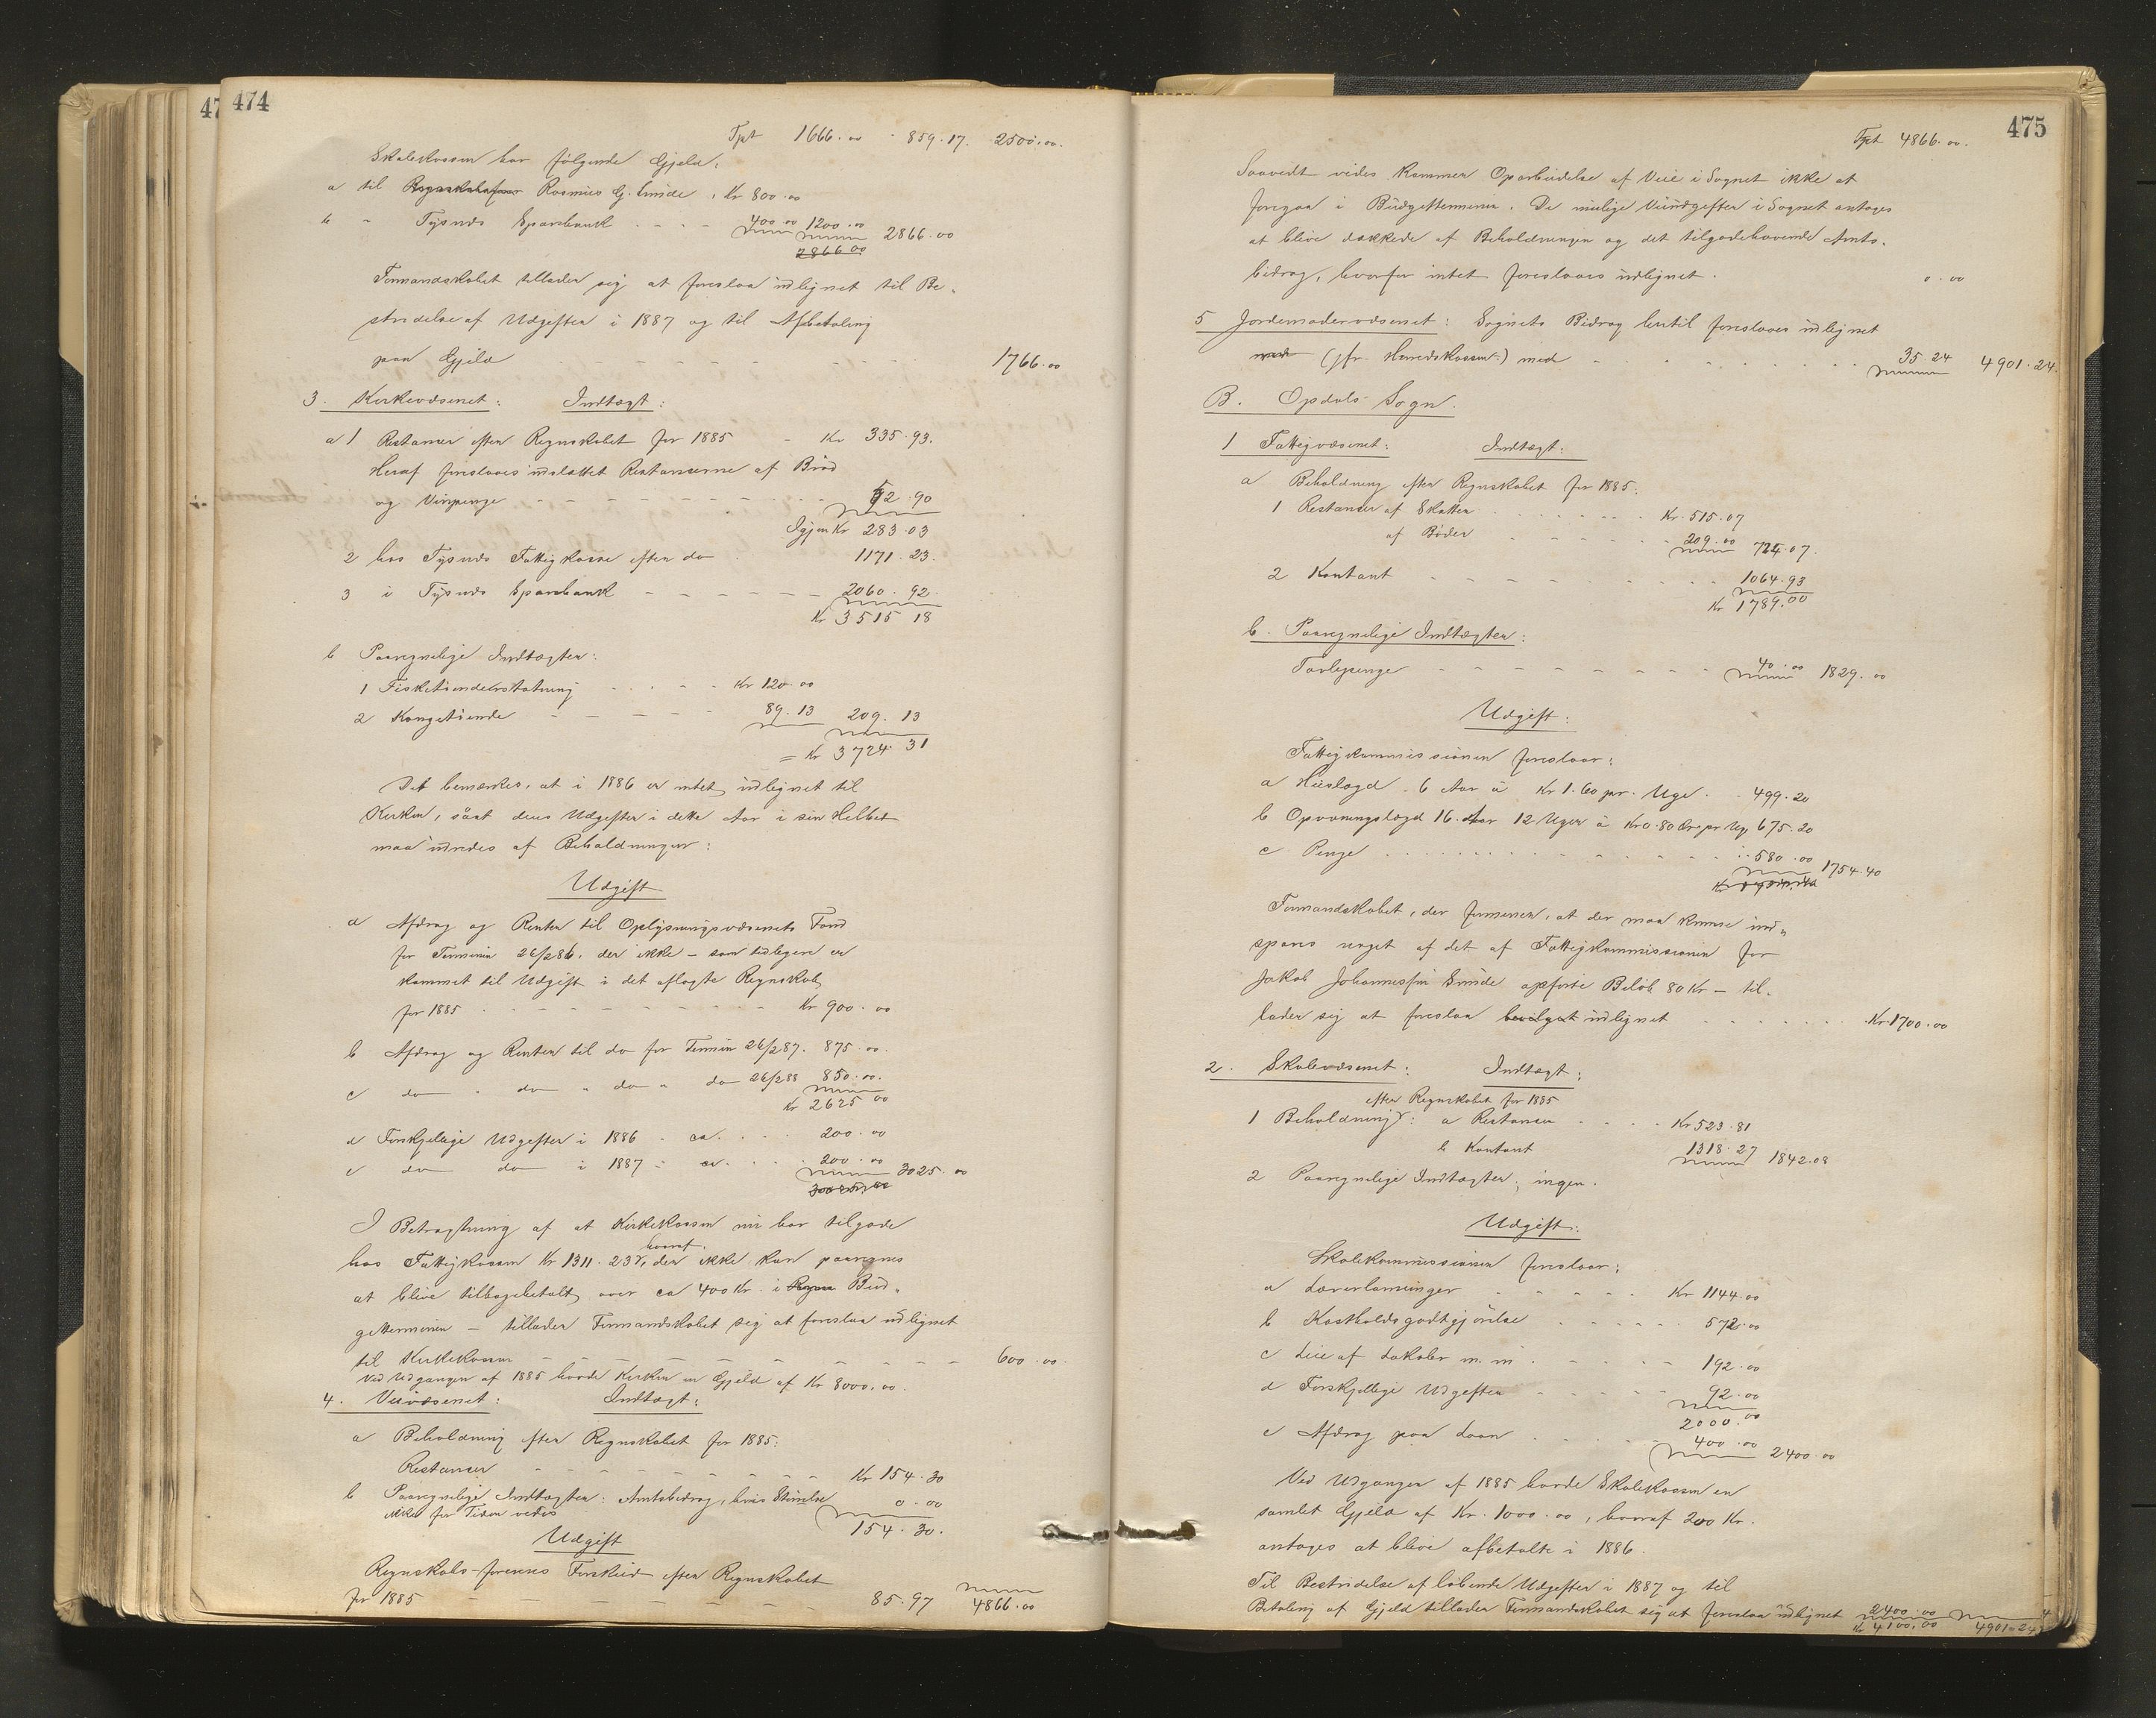 474
Tpt 1666.00 859.17. 2500.00.
Skolekassen har følgende Gjeld:
a til Regnskabsfører Rasmus G. Eninde, Kr 800.00
b - Tysnæs Sparebank - - - - 400.00 1200.00 2866.00
2866 00
Formandskabet tillader sig at foreslaa udlignet til Be-
stridelse af Udgifter i 1887 og til Afbetaling
paa Gjeld - - - - - - - 1766.00
3. Kirkevæsenet: Indtægt:
a 1 Restancer efter Regnskabet for 1885 - Kr 335.93.
Heraf foreslaaes udslettet Restancerne af Brød
og Vinpenge - - - - - - - - 52.90
Igjen Kr 283.03
2 hos Tysnæs Fattigkasse efter do 1171.23.
3 i Tysnæs Sparebank - - - - - - 2060.92.
Kr 3515 18
b Paaregnelige Indtægter:
1 Fisketiendeerstatning - - - - Kr 120.00
2 Kongetiende - - - - - 89.13 209.13
= Kr 3724.31
Det bemærkes, at i 1886 er intet udlignet til
Kirken, saat dens Udgifter i dette Aar i sin Helhet
maa udredes af Beholdninger:
Udgift
a Afdrag og Renter til Oplysningsvæsenets Fond
for Termin 26/2 86, der ikke - som tidligere er
kommet til Udgift i det aflagte Regnskab
for 1885 - - - - - - - - - Kr 900.00
b Afdrag og Renter til do for Termin 26/2 87. 875.00.
c do " do " do " do 26/2 88 850.00.
Kr 2625 00
d Forskjellige Udgifter i 1886 - ca. . . . 200.00
e do do i 1887 - ca. . . . 200.00 3025.00
I Betragtning af at Kirkekassen nu har tilgode
hos Fattigkassen Kr 1311.23, hvoraf der ikke kan paaregnes
at blive tilbagebetalt over ca 400 Kr. i Regn Bud-
getterminen - tillader Formandskabet sig at foreslaa udlignet
til Kirkekassen - - - - - - - - - - 600.00.
Ved Udgangen af 1885 havde Kirken en Gjeld af Kr 8000.00.
4. Veivæsenet: Indtægt:
a Beholdning efter Regnskabet for 1885:
Restancer - - - - - - - - Kr 154.30
b Paaregnelige Indtægter: Amtsbidrag, hvis Størrelse 0.00
ikke for Tiden vides
154.30.
Udgift
Regnskabs-førerens Forskud efter Regnskabet
for 1885 - - - - - - - - 85.97 4866.00
475
Tpt 4866.00.
Saavidt vides kommer Oparbeidelse af Veie i Sognet ikke at
foregaa i Budgetterminen. De mulige Veiudgifter i Sognet antages
at blive dækkede af Beholdningen og det tilgodehavende Amts-
bidrag, hvorfor intet foreslaaes udlignet. 0.00
5 Jordemodervæsenet: Sognets Bidrag hertil foreslaaes udlignet
med (jfr. Herredskassen) med - - - - - - 35.24 4901.24.
B. Opdals Sogn.
1 Fattigvæsenet: Indtægt:
a Beholdning efter Regnskabet for 1885:
1 Restancer af Skatter - - - - - - Kr. 515.07
af Bøder - - - - - - 209.00 724.07.
2 Kontant - - - - - - - - - 1064.93
Kr 1789.00
b. Paaregnelige Indtægter:
Tavlepenge - - - - - - - - 40.00 1829.00
Udgift:
Fattigkommissionen foreslaar:
a Huslægd 6 Aar à Kr 1.60 pr. Uge. . 499.20
b Opvoxningslægd 16 Aar 12 Uger à Kr 0.80 Øre pr Ug 675.20
c Penge . . . . . . . . . . . 580.00 1754.40
Formandskabet, der formener, at der maa kunne ind-
spares noget af det af Fattigkommissionen for
Jakob Johannesen Eninde opførte Beløb 80 Kr - til-
lader sig at foreslaa bevilget udlignet . . . . . . Kr. 1700.00
2. Skolevæsenet: Indtægt:
efter Regnskabet for 1885
1 Beholdning: a Restancer . . . . Kr 523.81
b Kontant 1318.27 1842.08
2 Paaregnelige Indtægter: ingen.
Udgift:
Skolekommissionen foreslaar:
a Lærerlønninger - - - - - Kr 1144.00
b Kostholdsgodtgjørelse - - - - - - 572.00
c Leie af Lokaler m. m. - - - - 192.00
d Forskjellige Udgifter - - - - - 92.00
2000.00
e Afdrag paa Laan . . . . . 400.00 2400.00
Ved Udgangen af 1885 havde Skolekassen en
samlet Gjeld af Kr. 1000.00, hvoraf 200 Kr.
antages at blive afbetalte i 1886.
Til Bestridelse af løbende Udgifter i 1887 og til
Betaling af Gjeld tillader Formandskabet sig at foreslaa udlignet 2400.00
Kr 4100.00 4901.24